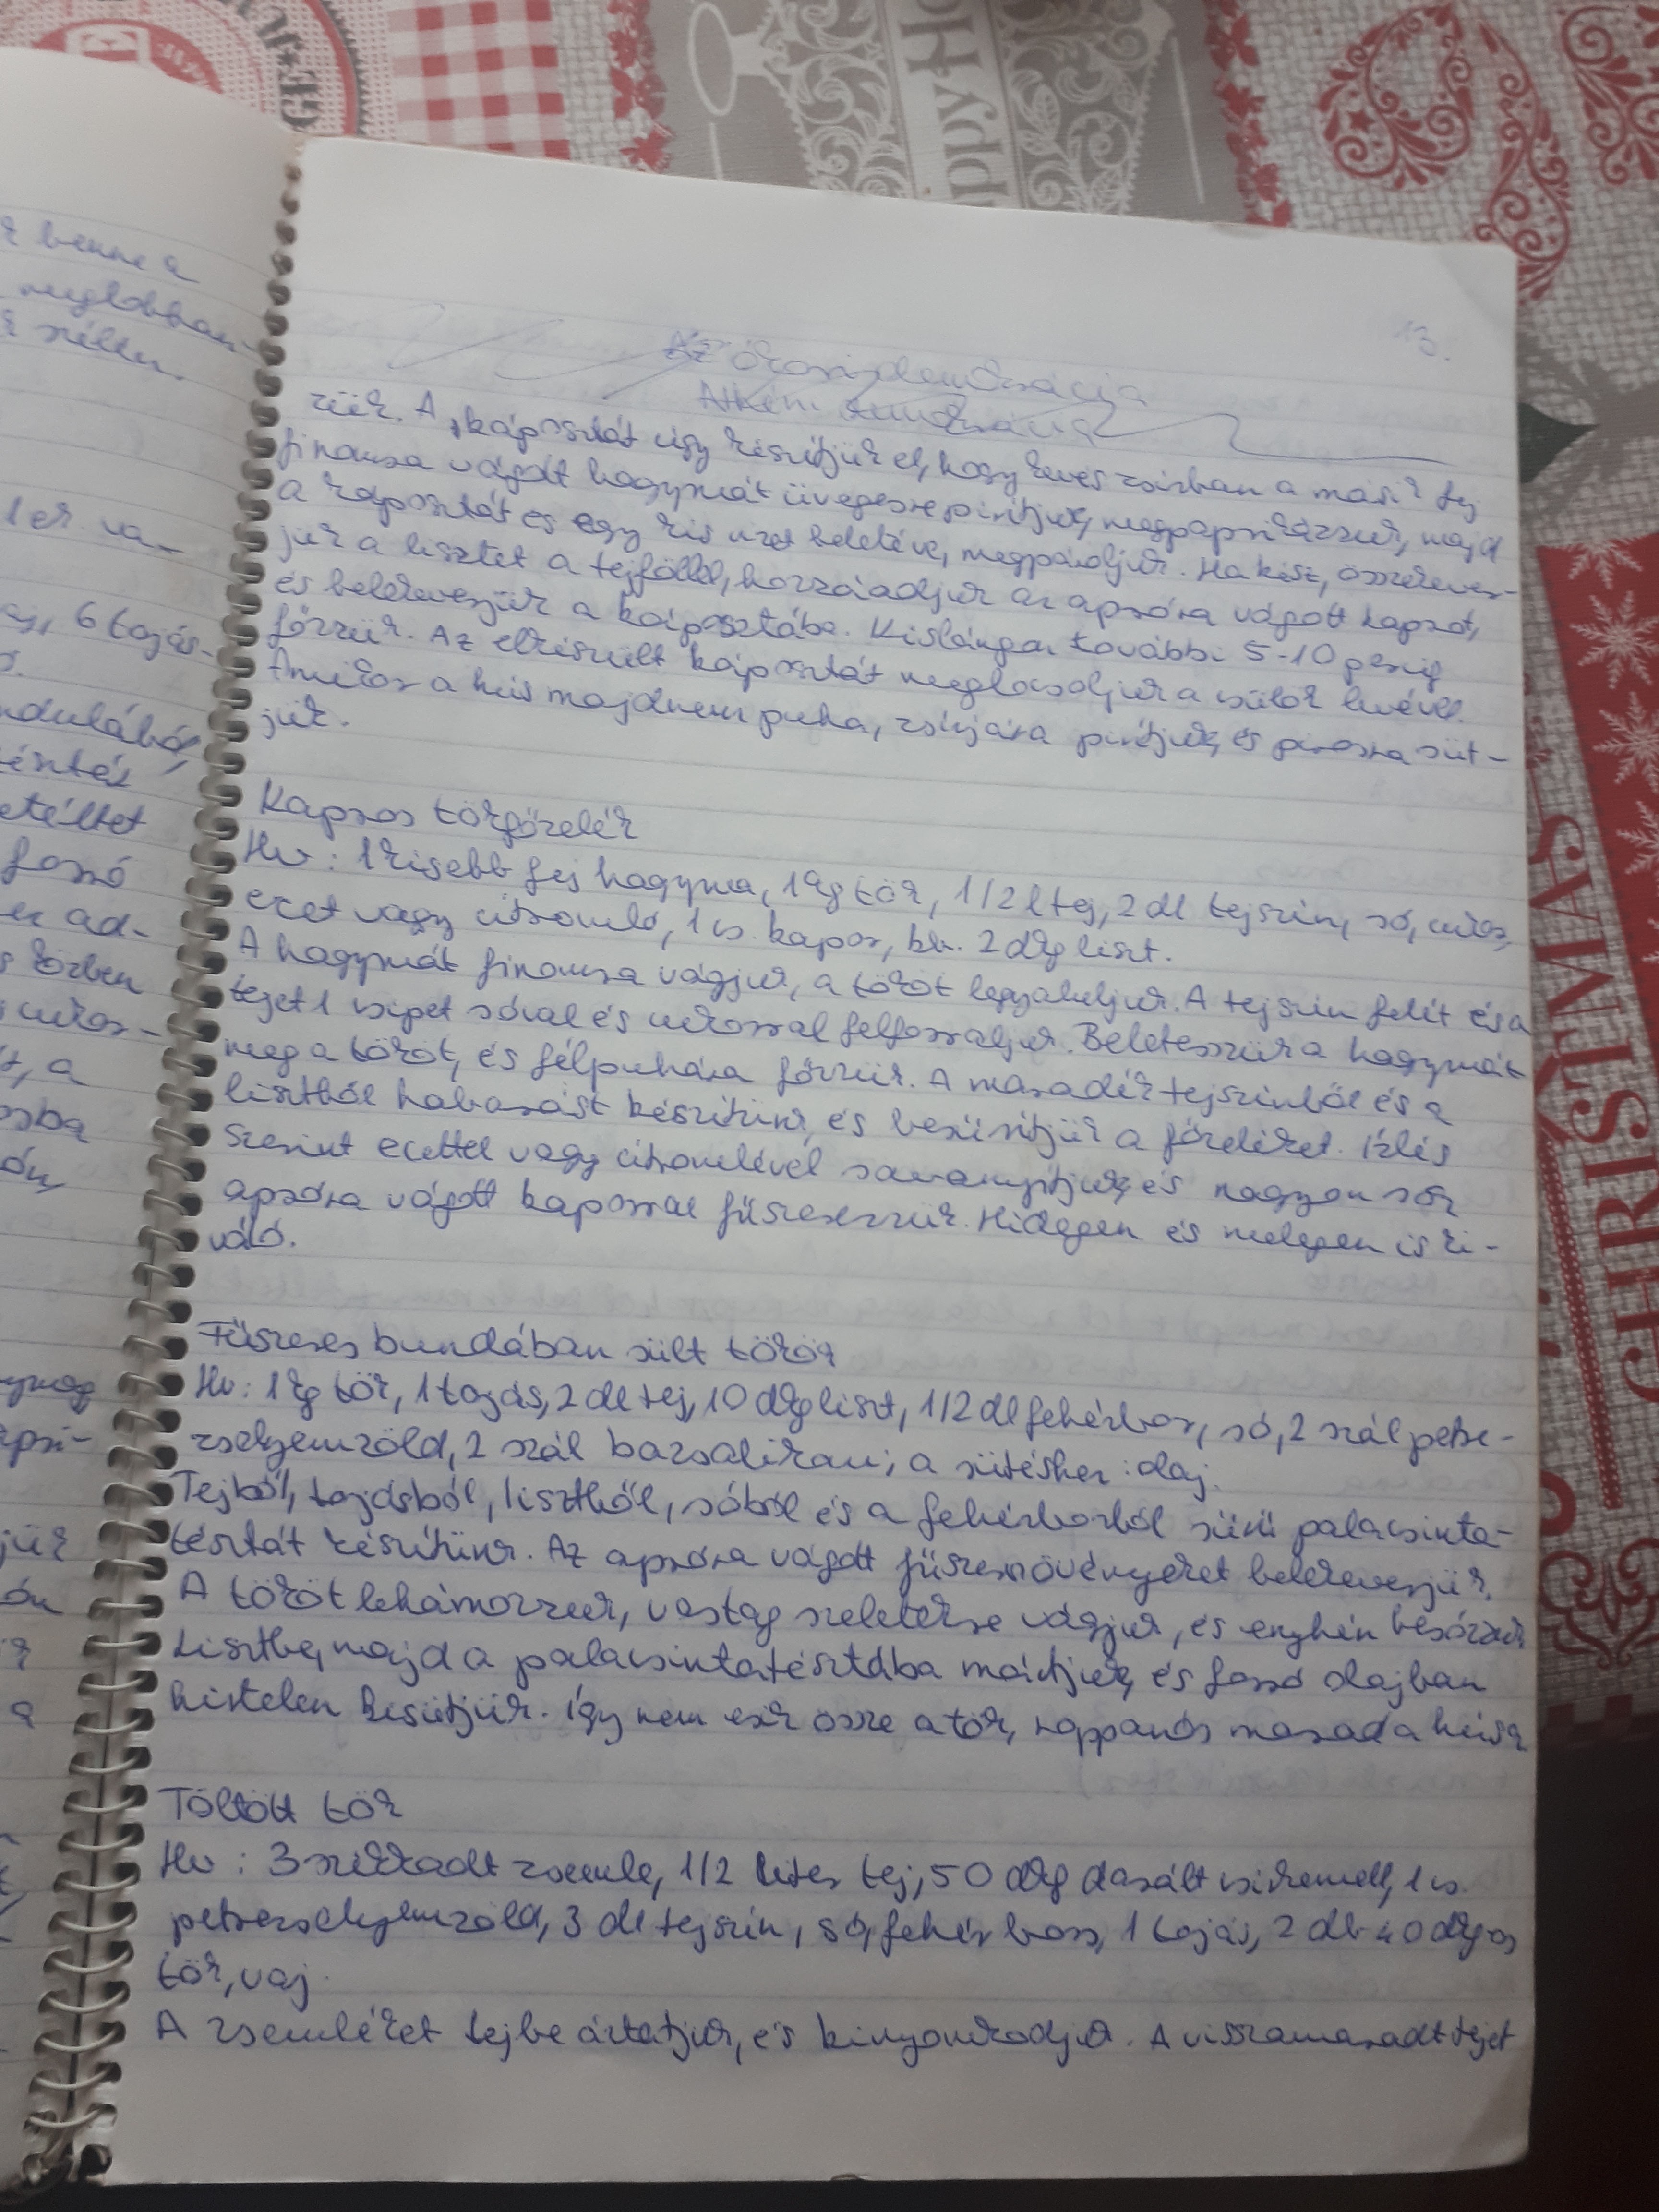 13.
Az ókori demokrácia
Athéni demokrácia
zük. A káposztát úgy készítjük el, hogy kevés zsírban a másik fej
finomra vágott hagymát üvegesre pirítjuk, megpaprikázzuk, majd
a káposztát és egy kis vizet beletéve, megpároljuk. Ha kész, összekever-
jük a lisztet a tejföllel, hozzáadjuk az apróra vágott kaprot,
és belekeverjük a káposztába. Kislángon további 5-10 percig
főzzük. Az elkészült káposztát meglocsoljuk a sülök levével.
Amikor a hús majdnem puha, zsírjára pirítjuk, és pirosra süt-
jük.
Kapros tökfőzelék
Hv: 1 kisebb fej hagyma, 1 kg tök, 1/2 l tej, 2 dl tejszín, só, cukor,
ecet vagy citromlé, 1 cs. kapor, kb. 2 dkg liszt.
A hagymát finomra vágjuk, a tököt legyaluljuk. A tejszín felét és a
tejet 1 csipet sóval és cukorral felforraljuk. Beletesszük a hagymát
meg a tököt, és félpuhára főzzük. A maradék tejszínből és a
lisztből habarást készítünk, és besűrítjük a főzeléket. Ízlés
szerint ecettel vagy citromlével savanyítjuk, és nagyon sok
apróra vágott kaporral fűszerezzük. Hidegen és melegen is ki-
váló.
Fűszeres bundában sült tökök
Hv: 1 kg tök, 1 tojás, 2 dl tej, 10 dkg liszt, 1/2 dl fehérbor, só, 2 szál petre-
zselyemzöld, 2 szál bazsalikom; a sütéshez: olaj.
Tejből, tojásból, lisztből, sóból és a fehérborból sűrű palacsinta-
tésztát készítünk. Az apróra vágott fűszernövényeket belekeverjük.
A tököt lehámozzuk, vastag szeletekre vágjuk, és enyhén besózzuk
Lisztbe, majd a palacsintatésztába mártjuk, és forró olajban
hirtelen kisütjük. Így nem esik össze a tök, roppanós marad a húsa
Töltött tök
Hv: 3 szikkadt zsemle, 1/2 liter tej, 50 dkg darált csirkemell, 1 cs.
petrezselyemzöld, 3 dl tejszín, só, fehér bors, 1 tojás, 2 db 40 dkg-os
tök, vaj.
A zsemléket tejbe áztatjuk, és kinyomkodjuk. A visszamaradt tejet
benne a
széllen.
6 tojás-
forró
ad-
körben
cukor-
a
CHRISTMAS